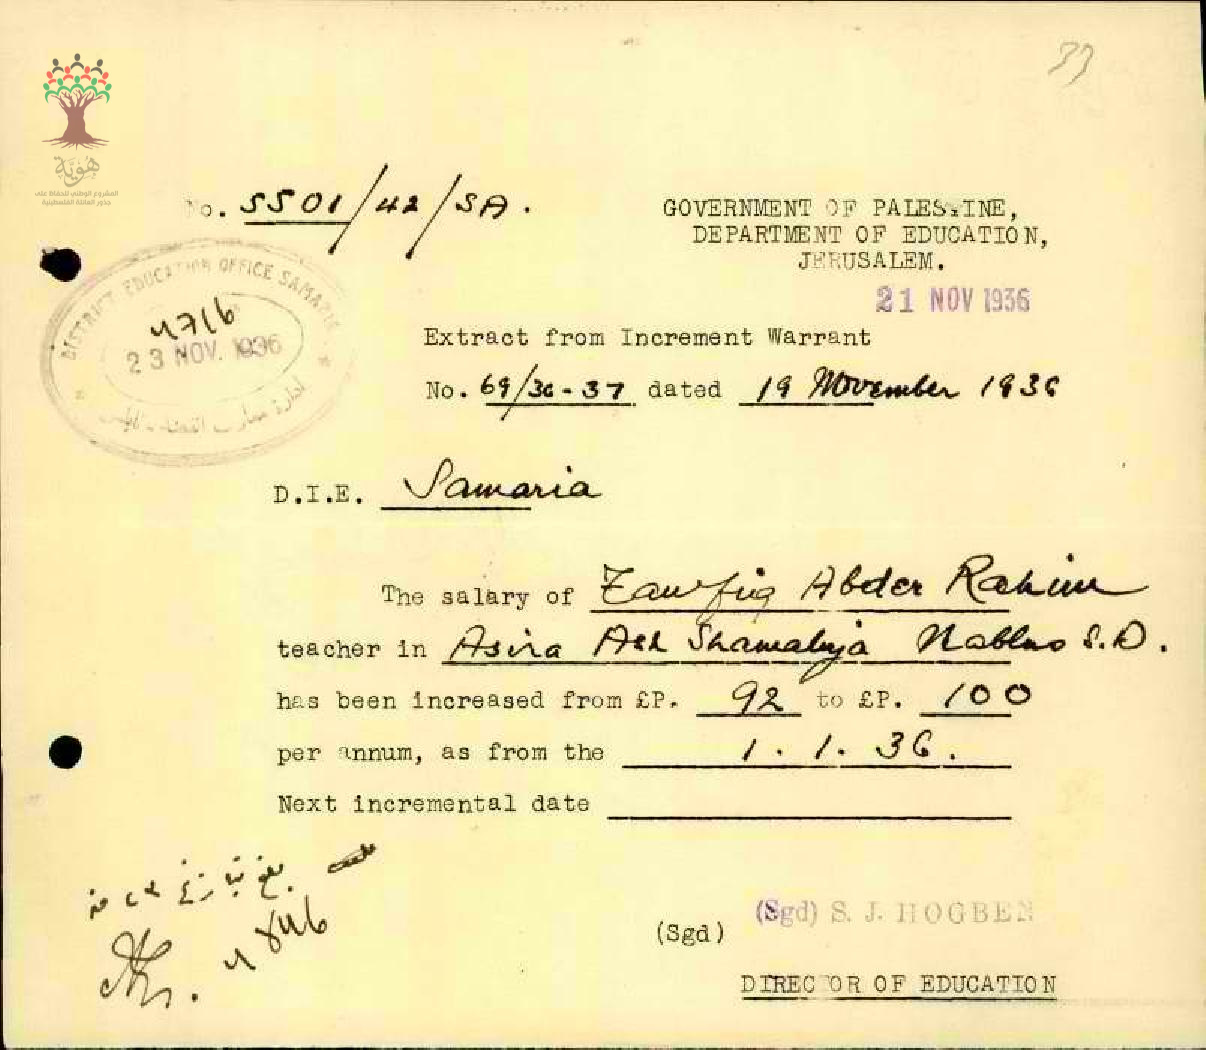 33
هُويَّة
المشروع الوطني للحفاظ على
جذور العائلة الفلسطينية
No. 5501/42/SA.
GOVERNMENT OF PALESTINE,
DEPARTMENT OF EDUCATION,
JERUSALEM.
21 NOV 1936
DISTRICT EDUCATION OFFICE SAMARIA
4716
23 NOV. 1936
ادارة معارف
Extract from Increment Warrant
No. 69/36-37 dated 19 November 1936
D.I.E. Samaria
The salary of Tawfiq Abder Rahim
teacher in Asira Ash Shamaliya Nablus S.D.
has been increased from £P. 92 to £P. 100
per annum, as from the 1.1.36.
Next incremental date
بلغ بتاريخ
(Sgd) S. J. HOGBEN
(Sgd)
DIRECTOR OF EDUCATION